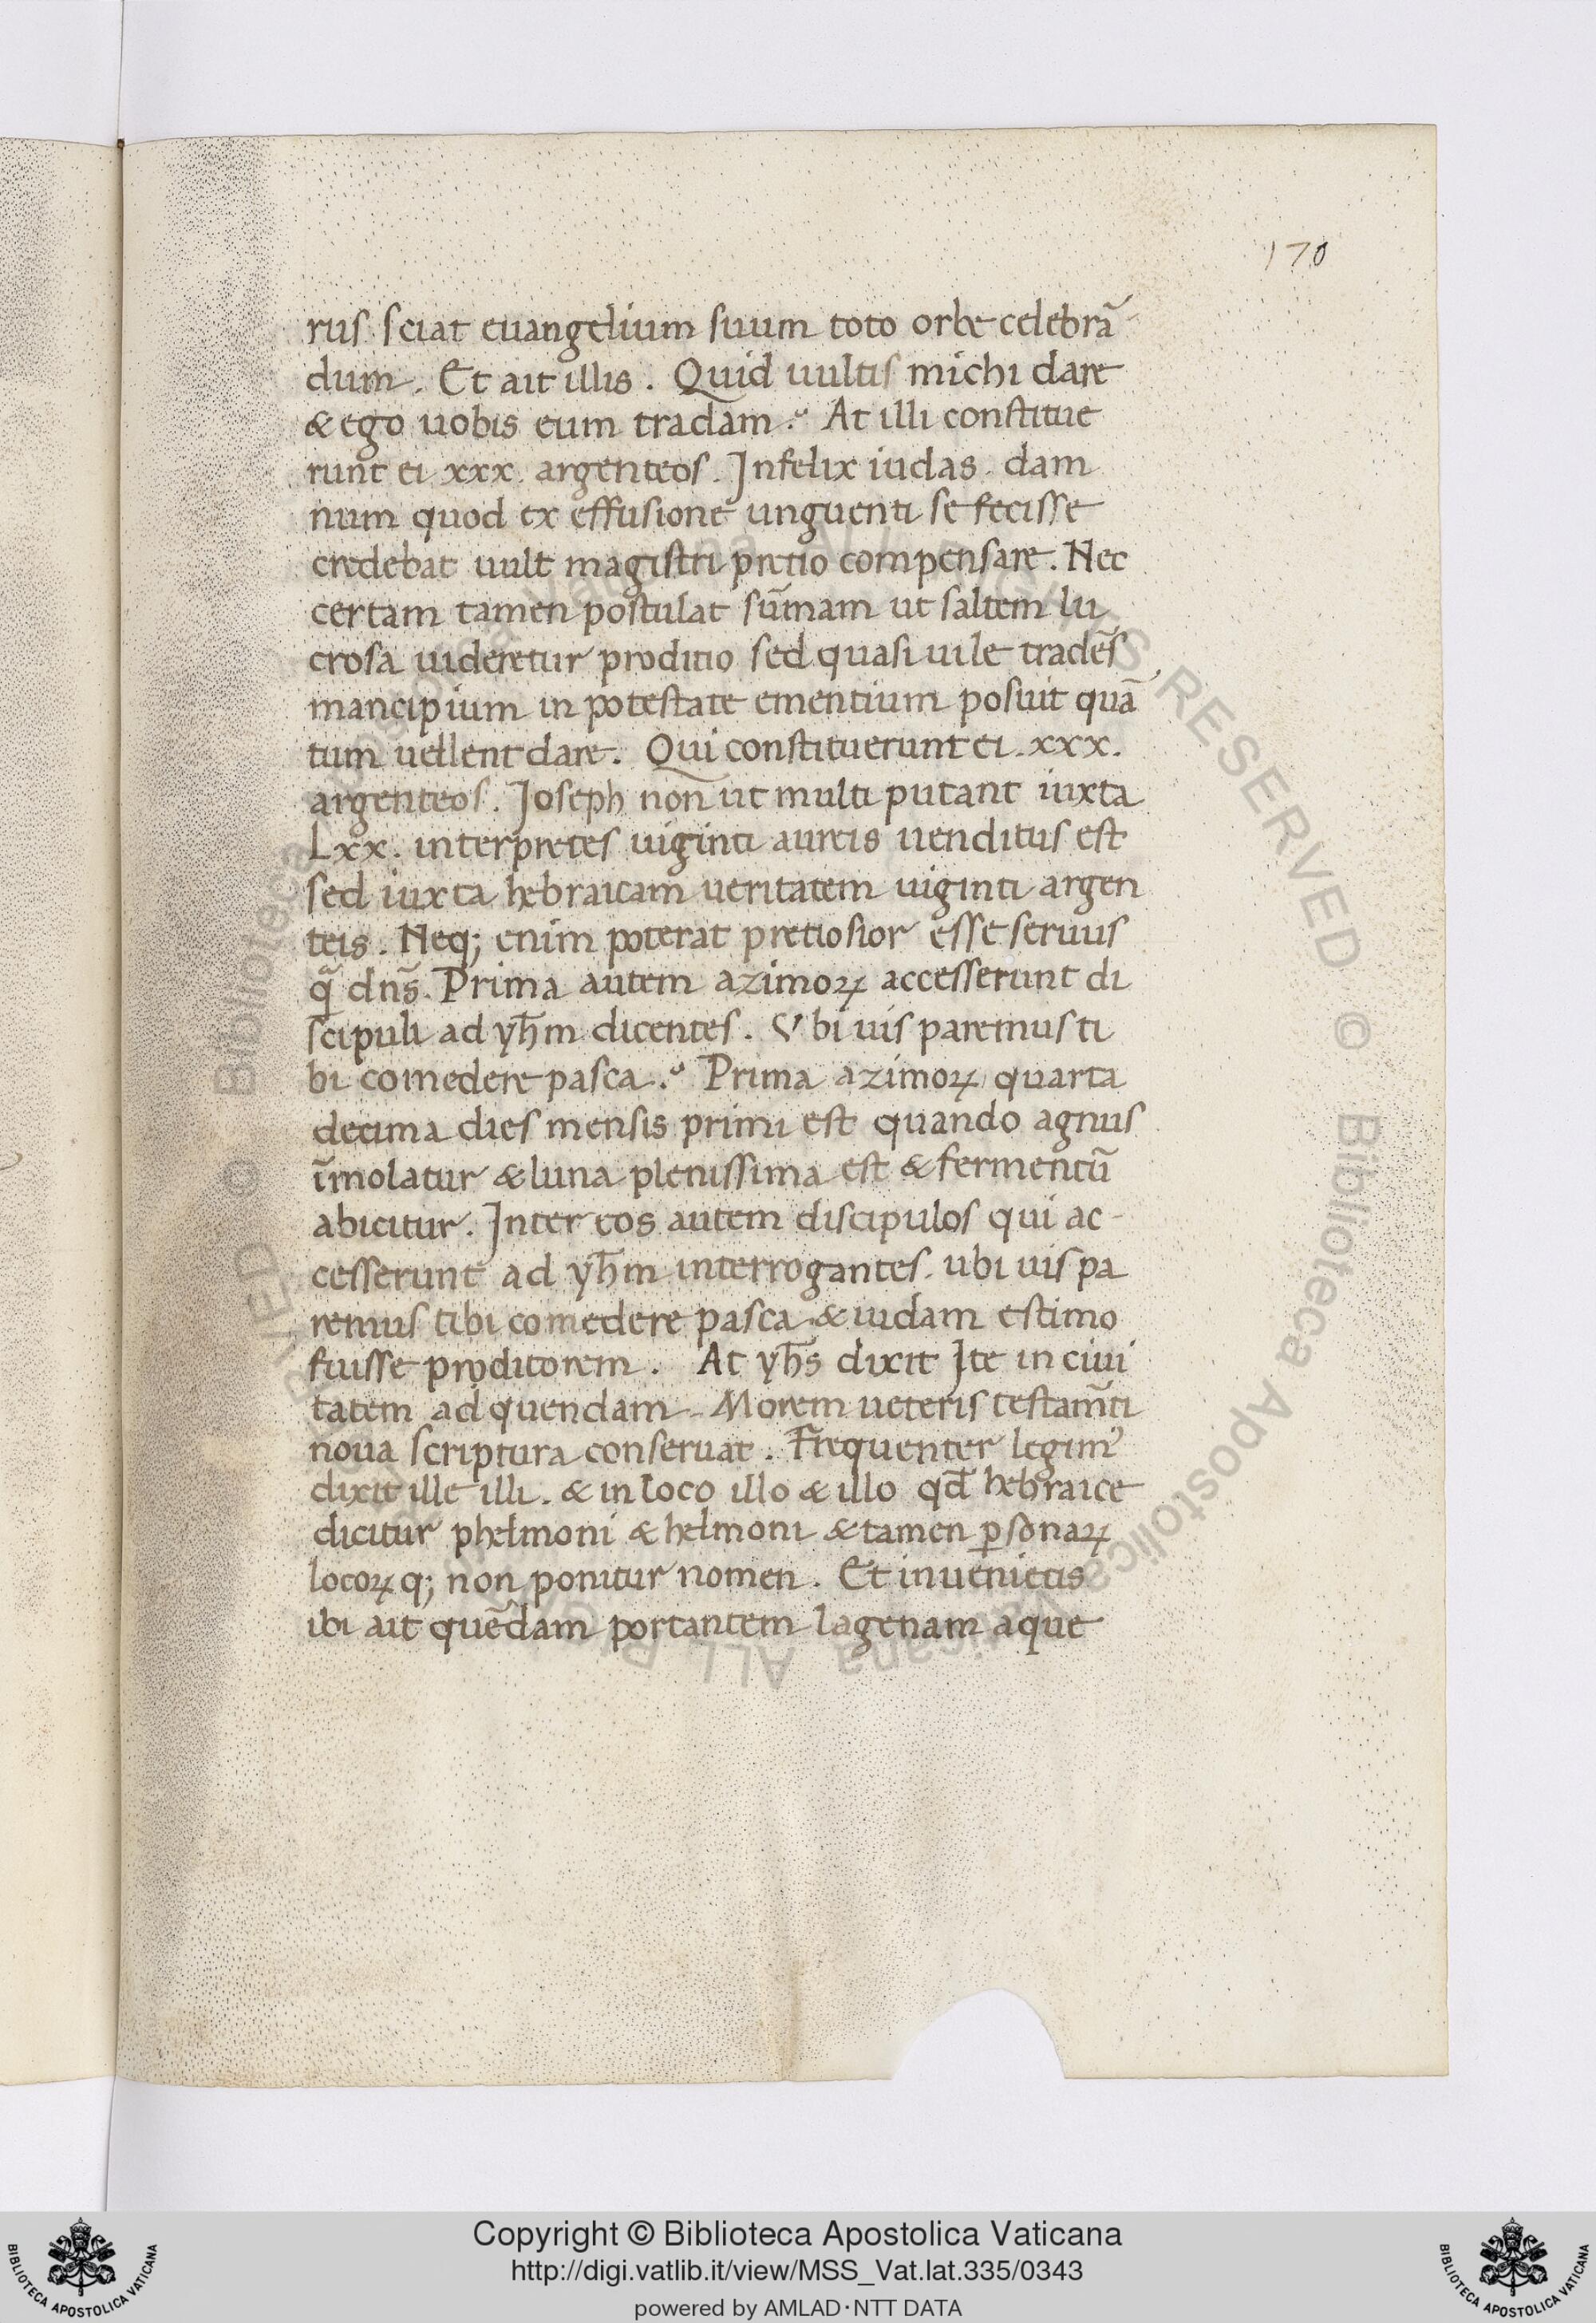 170
rus sciat euangelium suum toto orbe celebrã
dum. Et ait illis. Quid uultis michi dare
& ego uobis eum tradam.? At illi constitue
runt ei xxx. argenteos. Infelix iudas. dam
num quod ex effusione unguenti se fecisse
credebat uult magistri pretio compensare. Nec
certam tamen postulat sum̃am ut saltem lu
crosa uideretur proditio sed quasi uile tradẽs
mancipium in potestate ementium posuit quã
tum uellent dare. Qui constituerunt ei. xxx.
argenteos. Ioseph non ut multi putant iuxta
Lxx. interpretes uiginti aureis uenditus est
sed iuxta hebraicam ueritatem uiginti argen
teis. Neq; enim poterat pretiosior esse seruus
qᷓ dns̃. Prima autem azimoꝝ accesserunt di
scipuli ad yh̃m dicentes. Vbi uis paremus ti
bi comedere pasca.? Prima azimoꝝ quarta
decima dies mensis primi est quando agnus
ĩmolatur & luna plenissima est & fermentũ
abicitur. Inter eos autem discipulos qui ac-
cesserunt ad yh̃m interrogantes. ubi uis pa
remus tibi comedere pasca & iudam estimo
fuisse proditorem. At yh̃s dixit Ite in ciui
tatem ad quendam. Morem ueteris testam̃ti
noua scriptura conseruat. Frequenter legimꝰ
dixit ille illi. & in loco illo & illo qd̃ hebraice
dicitur phelmoni & helmoni & tamen ꝑsonaꝝ
locoꝝq; non ponitur nomen. Et inuenietis
ibi ait quẽdam portantem lagenam aque
© Biblioteca Apostolica Vaticana ALL RIGHTS RESERVED © Biblioteca Apostolica Vaticana ALL RIGHTS RESERVED
Copyright © Biblioteca Apostolica Vaticana
http://digi.vatlib.it/view/MSS_Vat.lat.335/0343
powered by AMLAD·NTT DATA
BIBLIOTECA APOSTOLICA VATICANA
BIBLIOTECA APOSTOLICA VATICANA